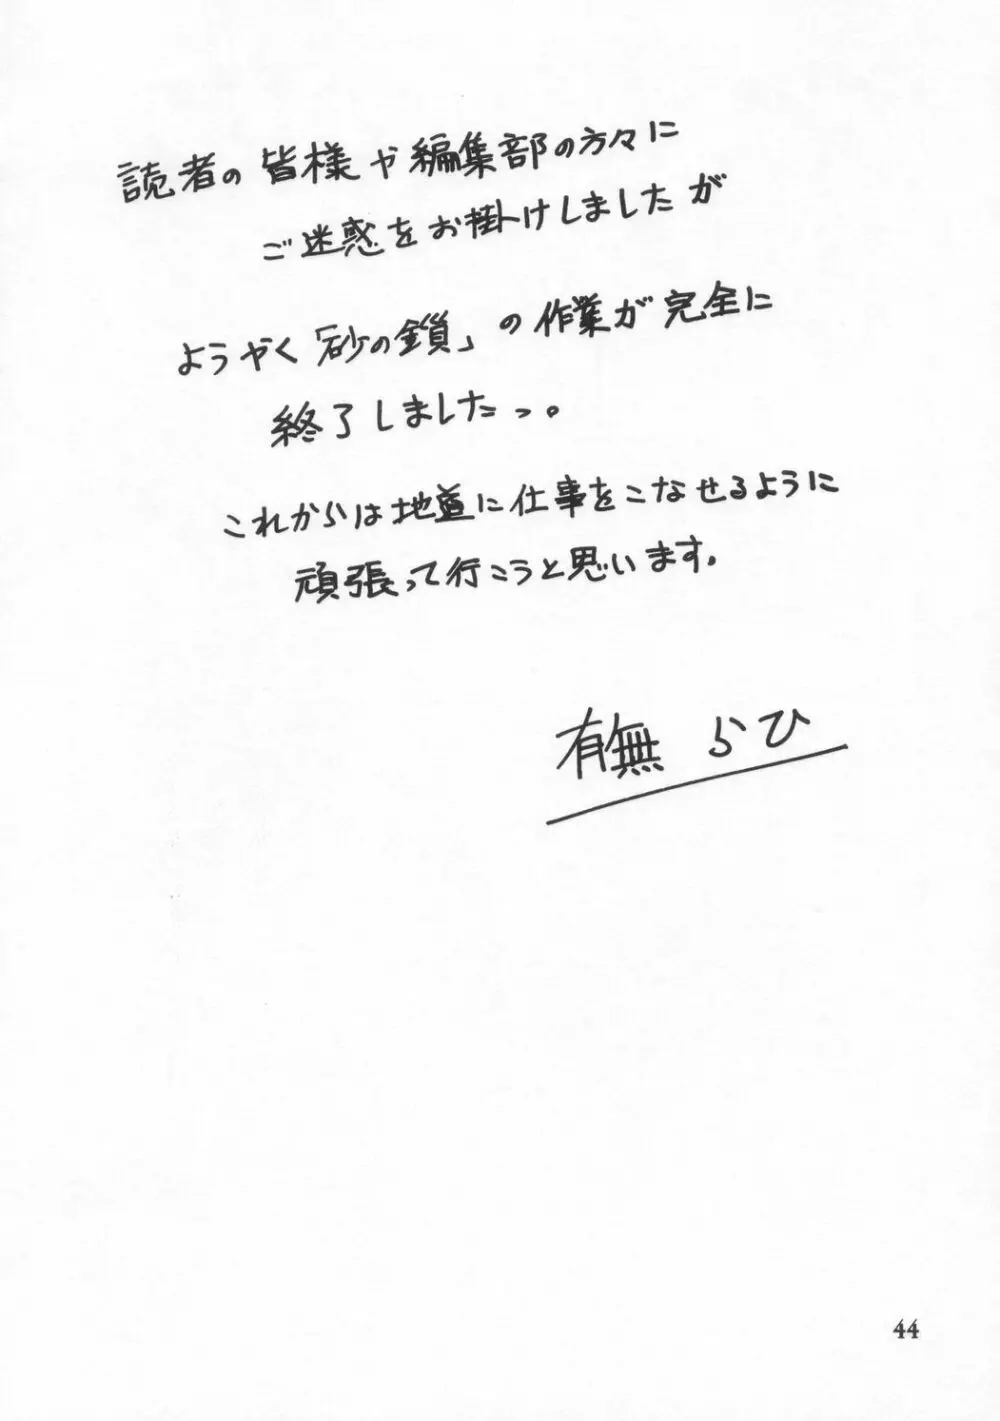 読者の皆様や編集部の方々に
ご迷惑をお掛けしましたが
ようやく「砂の鎖」の作業が完全に
終了しましたっ。
これからは地道に仕事をこなせるように
頑張って行こうと思います。
有無らひ
44